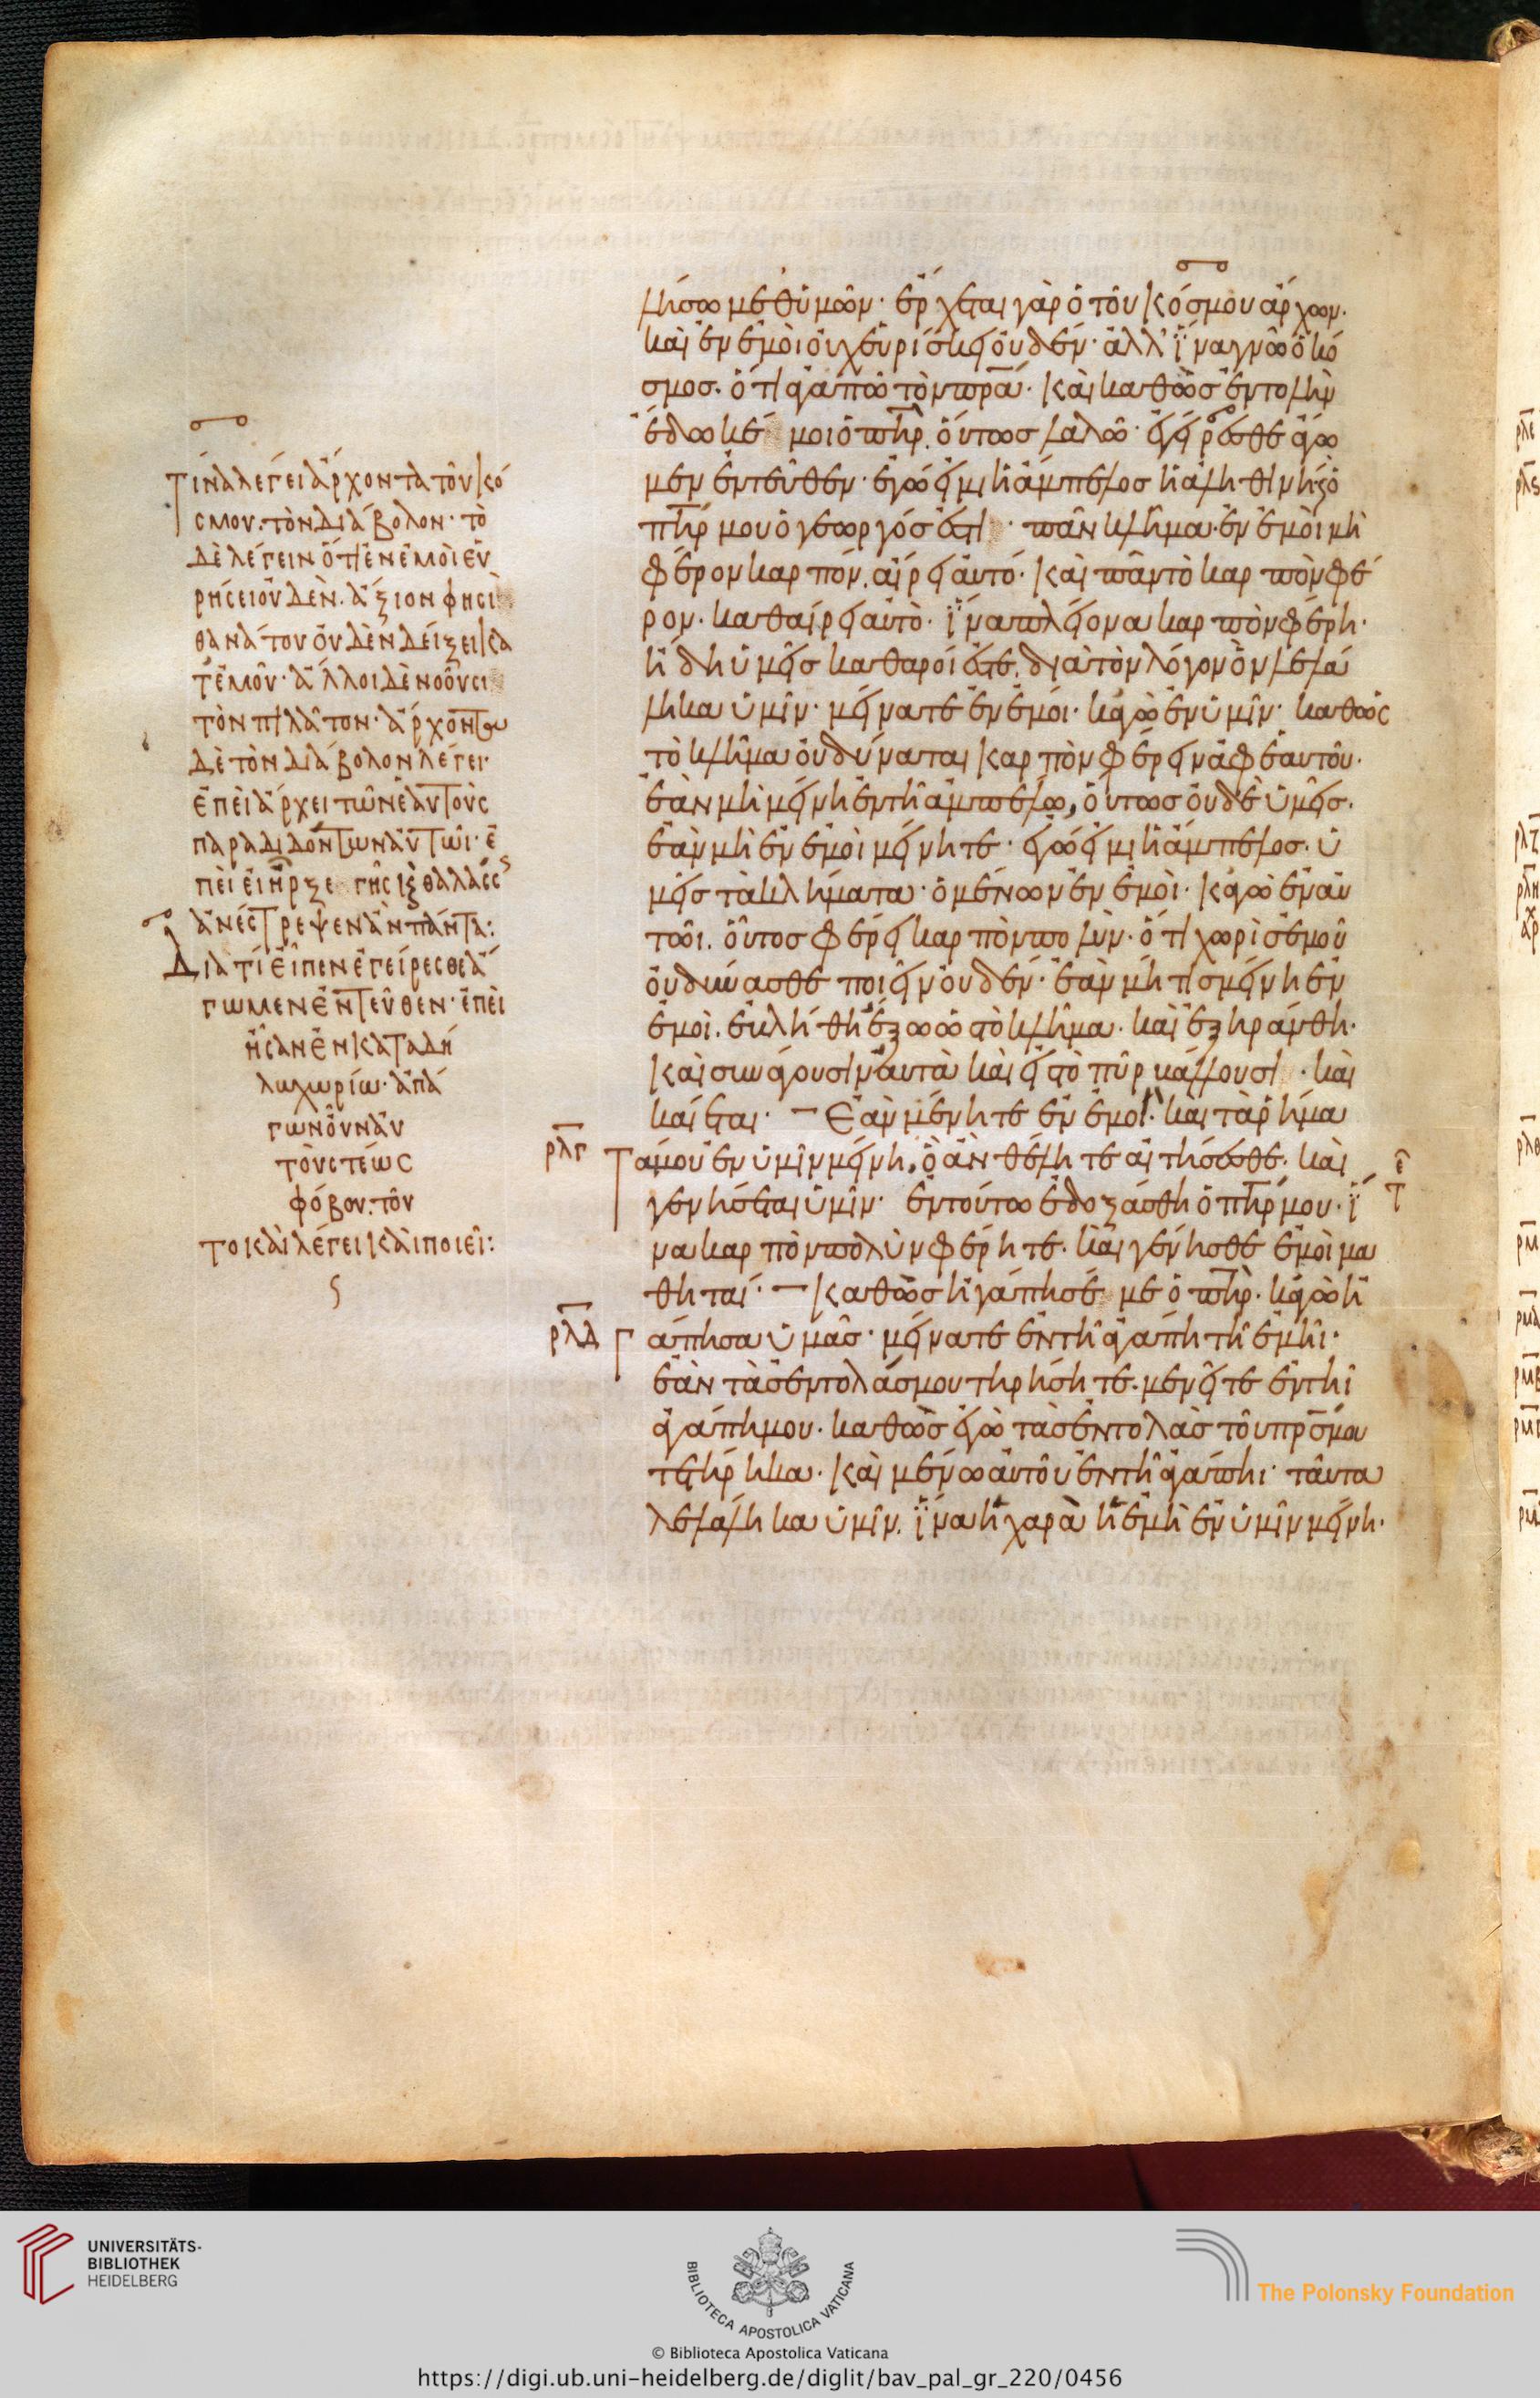 λήσω μεθ ὑμῶν· ἔρχεται γὰρ ὁ τοῦ κόσμου ἄρχων·
καὶ ἐν ἐμοὶ οὐχ εὑρίσκει οὐδέν· ἀλλ' ἵνα γνῶ ὁ κό
σμος. ὅτι ἀγαπῶ τὸν πρ̅α̅· καὶ καθὼς ἐντολὴν
ἔδωκέ μοι ὁ πη̅ρ̅. οὕτως λαλῶ· ἐγείρεσθε ἄγω
μεν ἐντεῦθεν· ἐγώ εἰμι ἡ ἄμπελος ἡ ἀληθινὴ καὶ ὁ
πη̅ρ̅ μου ὁ γεωργός ἐστι· πᾶν κλῆμα· ἐν ἐμοὶ μὴ
φέρον καρπόν. αἴρει αὐτό· καὶ πᾶν τὸ καρπὸν φέ
ρον. καθαίρει αὐτὸ· ἵνα πλείονα καρπὸν φέρη·
ἤδη ὑμεῖς καθαροί ἐστε. διὰ τὸν λόγον ὃν λελά
ληκα ὑμῖν· μείνατε ἐν ἐμοί· κἀγὼ ἐν ὑμῖν· καθὼς
τὸ κλῆμα οὐ δύναται καρπὸν φέρειν ἀφ ἑαυτοῦ·
ἐὰν μὴ μείνη ἐν τῆ ἀμπέλω, οὕτως οὐδὲ ὑμεῖς·
ἐὰν μὴ ἐν ἐμοὶ μείνητε· ἐγώ εἰμι ἡ ἄμπελος. ὑ
μεῖς τὰ κλήματα· ὁ μένων ἐν ἐμοὶ· κἀγὼ ἐν αὐ
τῶι. οὗτος φέρει καρπὸν πολὺν· ὅτι χωρὶς ἐμοῦ
οὐ δύνασθε ποιεῖν οὐδέν· ἐὰν μή τις μείνη ἐν
ἐμοὶ. ἐκλήθη ἔξω ὡς τὸ κλῆμα· καὶ ἐξηράνθη·
καὶ συνάγουσιν αὐτὰ καὶ εἰς τὸ πῦρ βάλλουσι· καὶ
καίεται· – Ἐὰν μένητε ἐν ἐμοί· καὶ τὰ ῥήμα
ρλγ τά μου ἐν ὑμῖν μείνη, ὃ ἂν θέλητε αἰτήσασθε· καὶ
γενήσεται ὑμῖν· ἐν τούτω ἐδοξάσθη ὁ πη̅ρ̅ μου· ἵ
να καρπὸν πολὺν φέρητε· καὶ γένησθε ἐμοὶ μα
θηταί· – καθὼς ἠγάπησέ με ὁ πη̅ρ̅· κἀγὼ ἠ
ρλδ γάπησα ὑμᾶς· μείνατε ἐν τῆ ἀγάπη τῆ ἐμῆι·
ἐὰν τὰς ἐντολάς μου τηρήσητε. μενεῖτε ἐν τῆι
ἀγάπη μου· καθὼς ἐγὼ τὰς ἐντολὰς τοῦ πρ̅ς̅ μου
τετήρηκα· καὶ μένω αὐτοῦ ἐν τῆ ἀγάπηι· ταῦτα
λελάληκα ὑμῖν. ἵνα ἡ χαρὰ ἡ ἐμὴ ἐν ὑμῖν μείνη·
τίνα λέγει ἄρχοντα τοῦ κό
σμου· τὸν διάβολον· τὸ
δὲ λέγειν ὅτι ἐν ἐμοὶ εὑ
ρήσει οὐδὲν. ἄξιον φησὶ
θανάτου οὐδὲν δείξει κα
τ ἐμοῦ· ἄλλοι δὲ νοοῦσι
τὸν πιλᾶτον· ἄρχοντα
δὲ τὸν διάβολον λέγει·
ἐπεὶ ἄρχει τῶν ἑαυτοὺς
παραδιδόντων αὐτῶι· ἐ
πεὶ εἰ ἦρξε γῆς καὶ θαλάσσης
ἀνέστρεψεν ἂν πάντα:
Διατί εἶπεν ἐγείρεσθε ἄ
γωμεν ἐντεῦθεν· ἐπεὶ
ἦσαν ἐν καταδή
λω χωρίω· ἀπά
γων οὖν αὐ
τοὺς τέως
φόβου· τοῦ
το καὶ λέγει καὶ ποιεῖ:
UNIVERSITÄTS-
BIBLIOTHEK
HEIDELBERG
BIBLIOTECA APOSTOLICA VATICANA
The Polonsky Foundation
© Biblioteca Apostolica Vaticana
https://digi.ub.uni-heidelberg.de/diglit/bav_pal_gr_220/0456